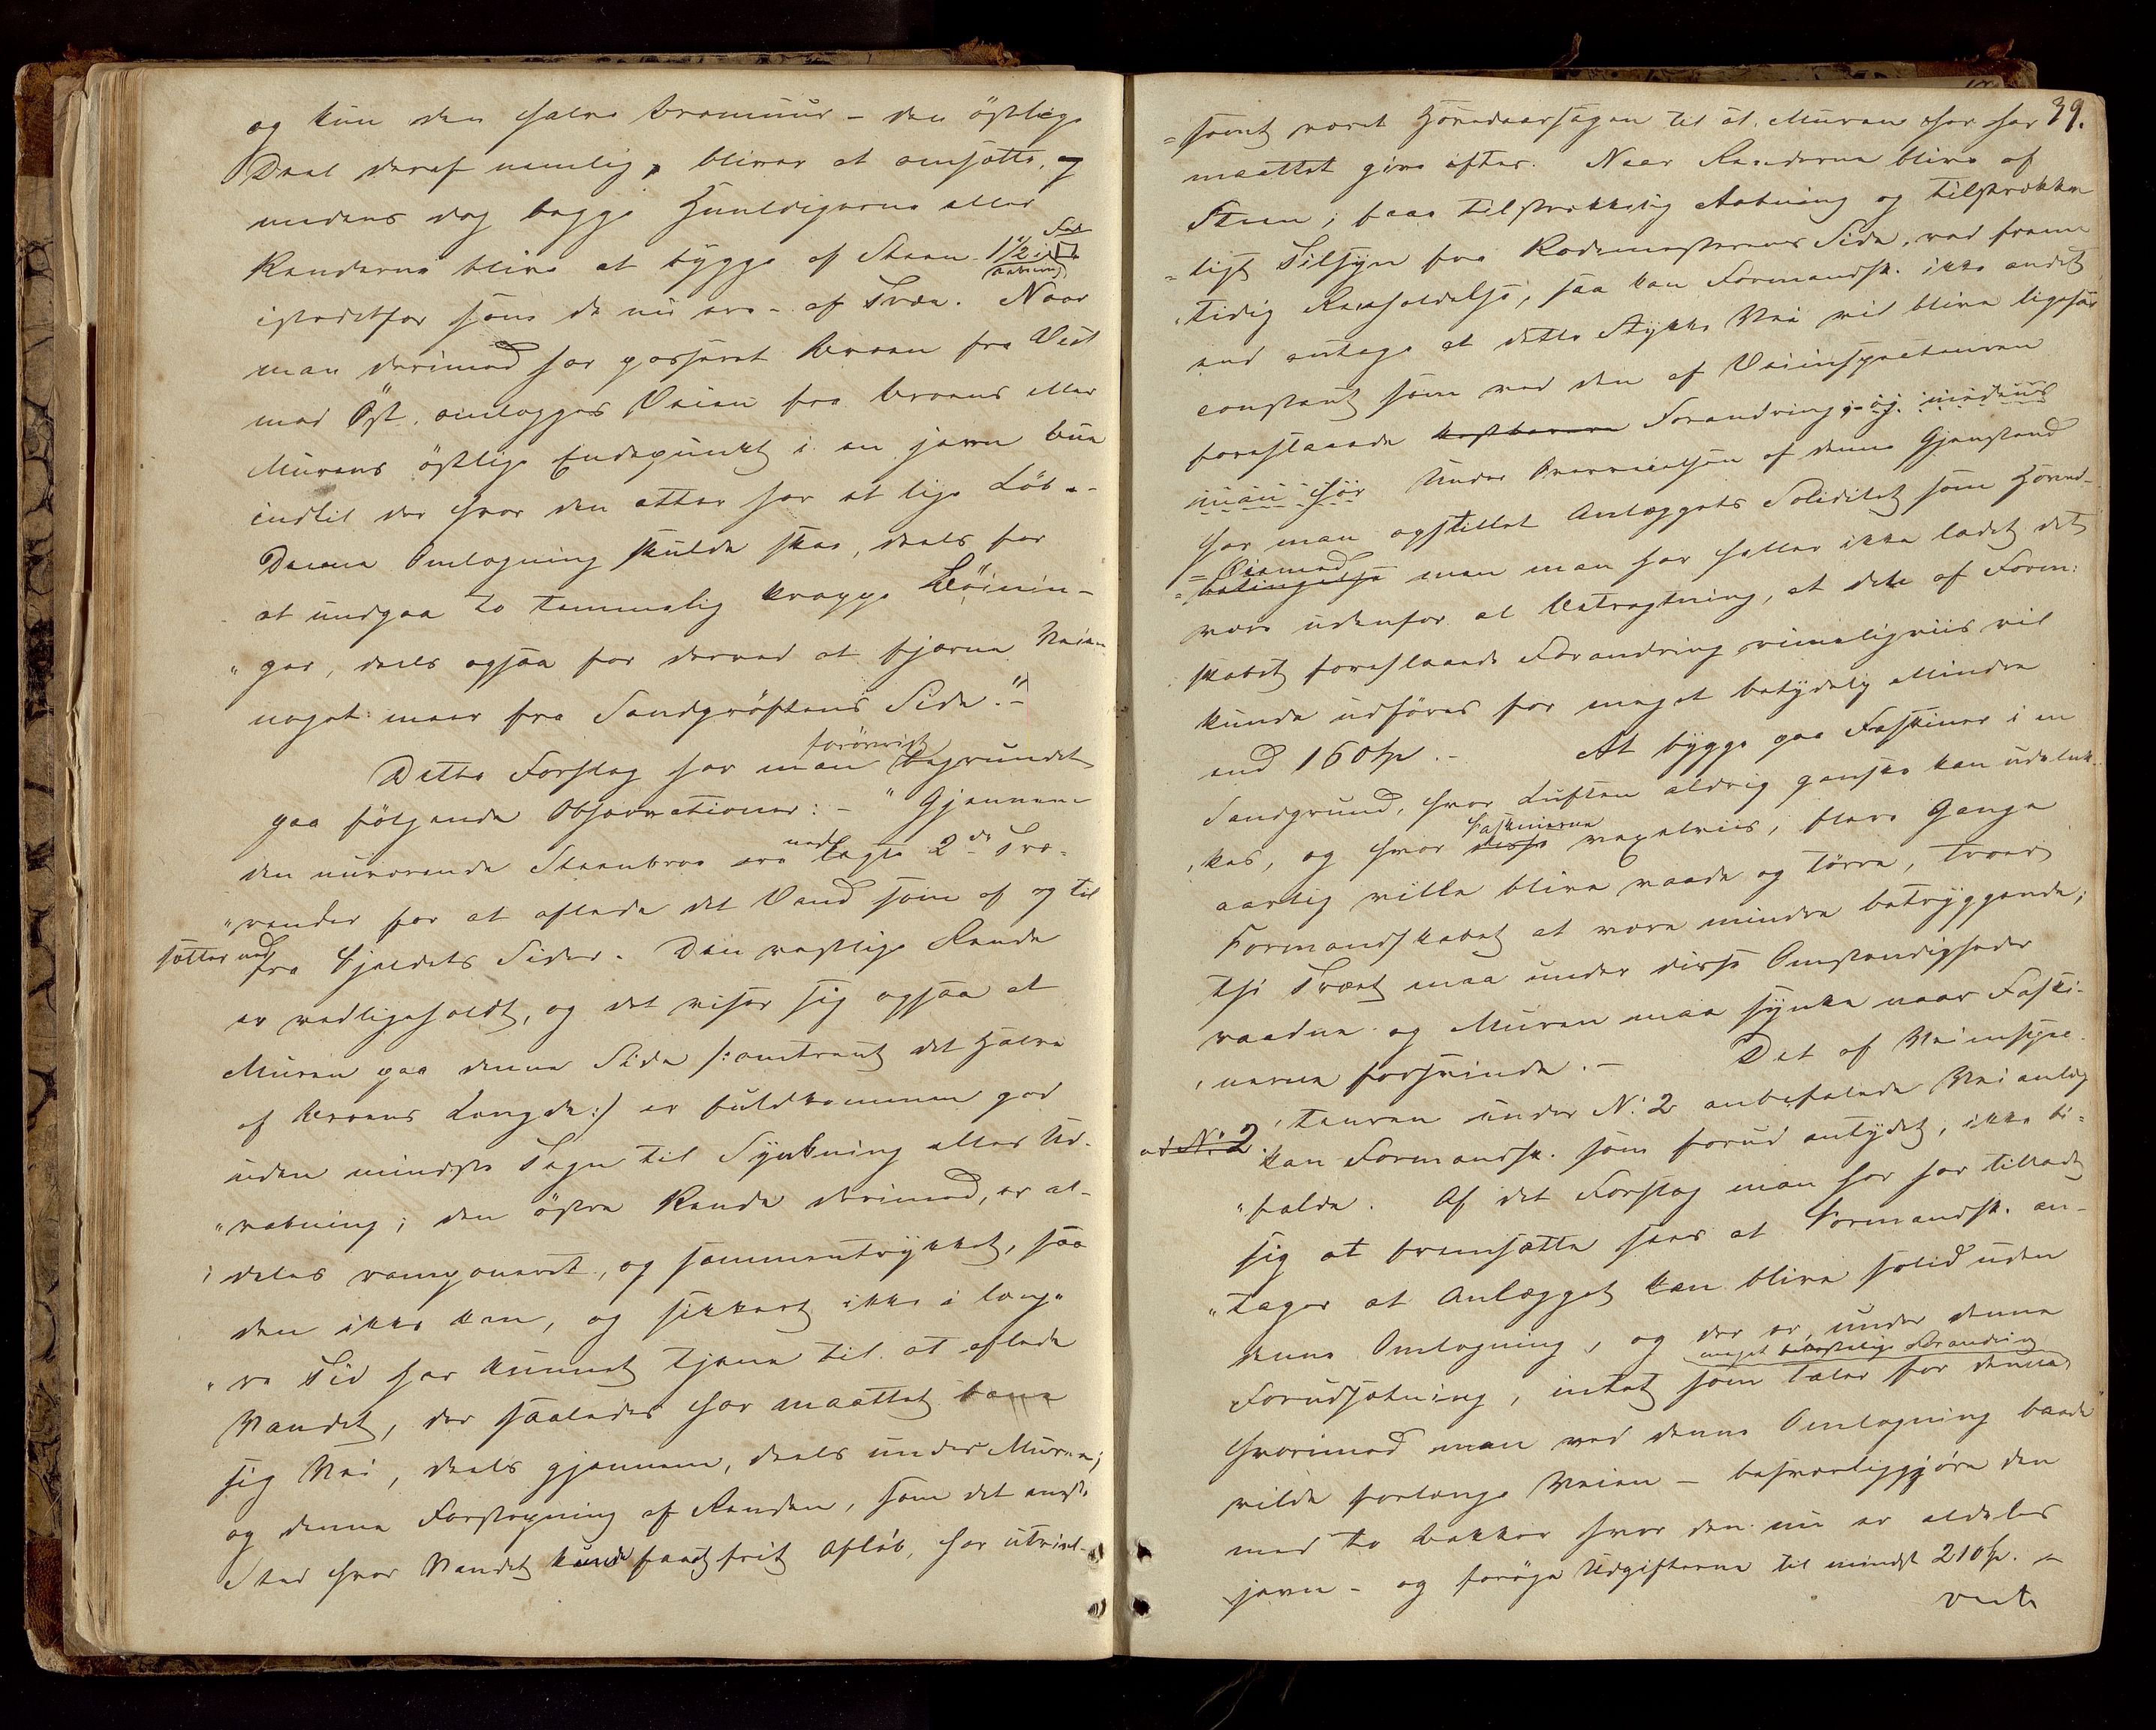 og kun den halve Bromuur – den östlige
Deel deraf nemlig, bliver at omsætte, og
medens dog begge Huuldigerne eller
Renderne blive at bygge af Steen 1 1/2 i Fod □ Aabning
istedetfor som de nu ere – af Træe. Naar
man derimod har passeret Broen fra Vest
mod Öst, omlægges Veien fra Broens eller
Murens östlige Endepunkt i en jævn Bue
indtil der hvor den atter har et lige Löb –
Denne Omlægning skulde skee, deels for
at undgaa to temmelig krappe Böinin-
"ger, deels ogsaa for derved at fjerne Veien
noget meer fra Sandgröftens Side." –
Dette Forslag har man forövrigt begrundet
paa fölgende Observationer: – "Gjennem
den nuværende Steenbroe ere nedlagte 2de Træ-
"render for at aflede det Vand som af og til
sætter ned fra Fjeldets Sider. Den vestlige Rende
er vedligeholdt, og det viser sig ogsaa at
Muren paa denne Side /: omtrent det Halve
af Broens Længde :/ er fuldkommen god
uden mindste Tegn til Synkning eller Ud-
"vabning; den östre Rende derimod, er al-
"deles ramponeret, og sammentrykket, saa
den ikke kan, og sikkert ikke i læng-
"re Tid har kunnet tjene til at aflede
Vandet, der saaledes har maattet bane
sig Vei, deels gjennem, deels under Muren;
og denne Forstopning af Renden, som det eneste
Sted hvor Vandet kunde faaet frit Aflöb, har utvivl-
39.
=somt været Hovedaarsagen til at Muren her har
maattet give efter. Naar Renderne blive af
Steen, faae tilstrækkelig Aabning og tilstrække-
=ligt Tilsyn fra Rodemesterens Side, ved frem-
"tidig Reenholdelse, saa kan Formandsk. ikke andet
end antage at dette Stykke Vei vil blive ligesaa
constant som ved den af Veiinspecteuren
foreslaaede kostbarere Forandring; og medens
man har Under Overveielsen af denne Gjenstand
har man opstillet Anlæggets Soliditet som Hoved-
=Öiemed betingelse men man har heller ikke ladet det
være udenfor al Betragtning, at den af Form:
skabet foreslaaede Forandring rimeligviis vil
kunde udföres for meget betydelig Mindre
end 160 Sp. – At bygge paa Faskiner i en
Sandgrund, hvor Luften aldrig ganske kan udeluk-
"kes, og hvor disse Faskinerne vexelviis, flere Gange
aarlig ville blive vaade og törre, troer
Formandskabet at være mindre betryggende;
thi Træet maa under disse Omstændigheder
raadne og Muren maa synke naar Faski-
"nerne forsvinde. – Det af Veiinspec-
"teuren under No: 2 anbefalede Veianlæg
ad No: 2. kan Formandsk. som forud antydet, ikke bi-
"falde. Af det Forslag man her har tilladt
sig at fremsætte sees at Formandsk. an-
"tager at Anlægget kan blive solid uden
denne Omlægning, og der er, under denne
Forudsætning, intet som taler for denne meget bekostelige Forandring
hvorimod man ved denne Omlægning baade
vilde forlænge Veien – besværliggjöre den
med to Bakker hvor den nu er aldeles
jævn – og foröge Udgifterne til mindst 210 Sp. –
verte